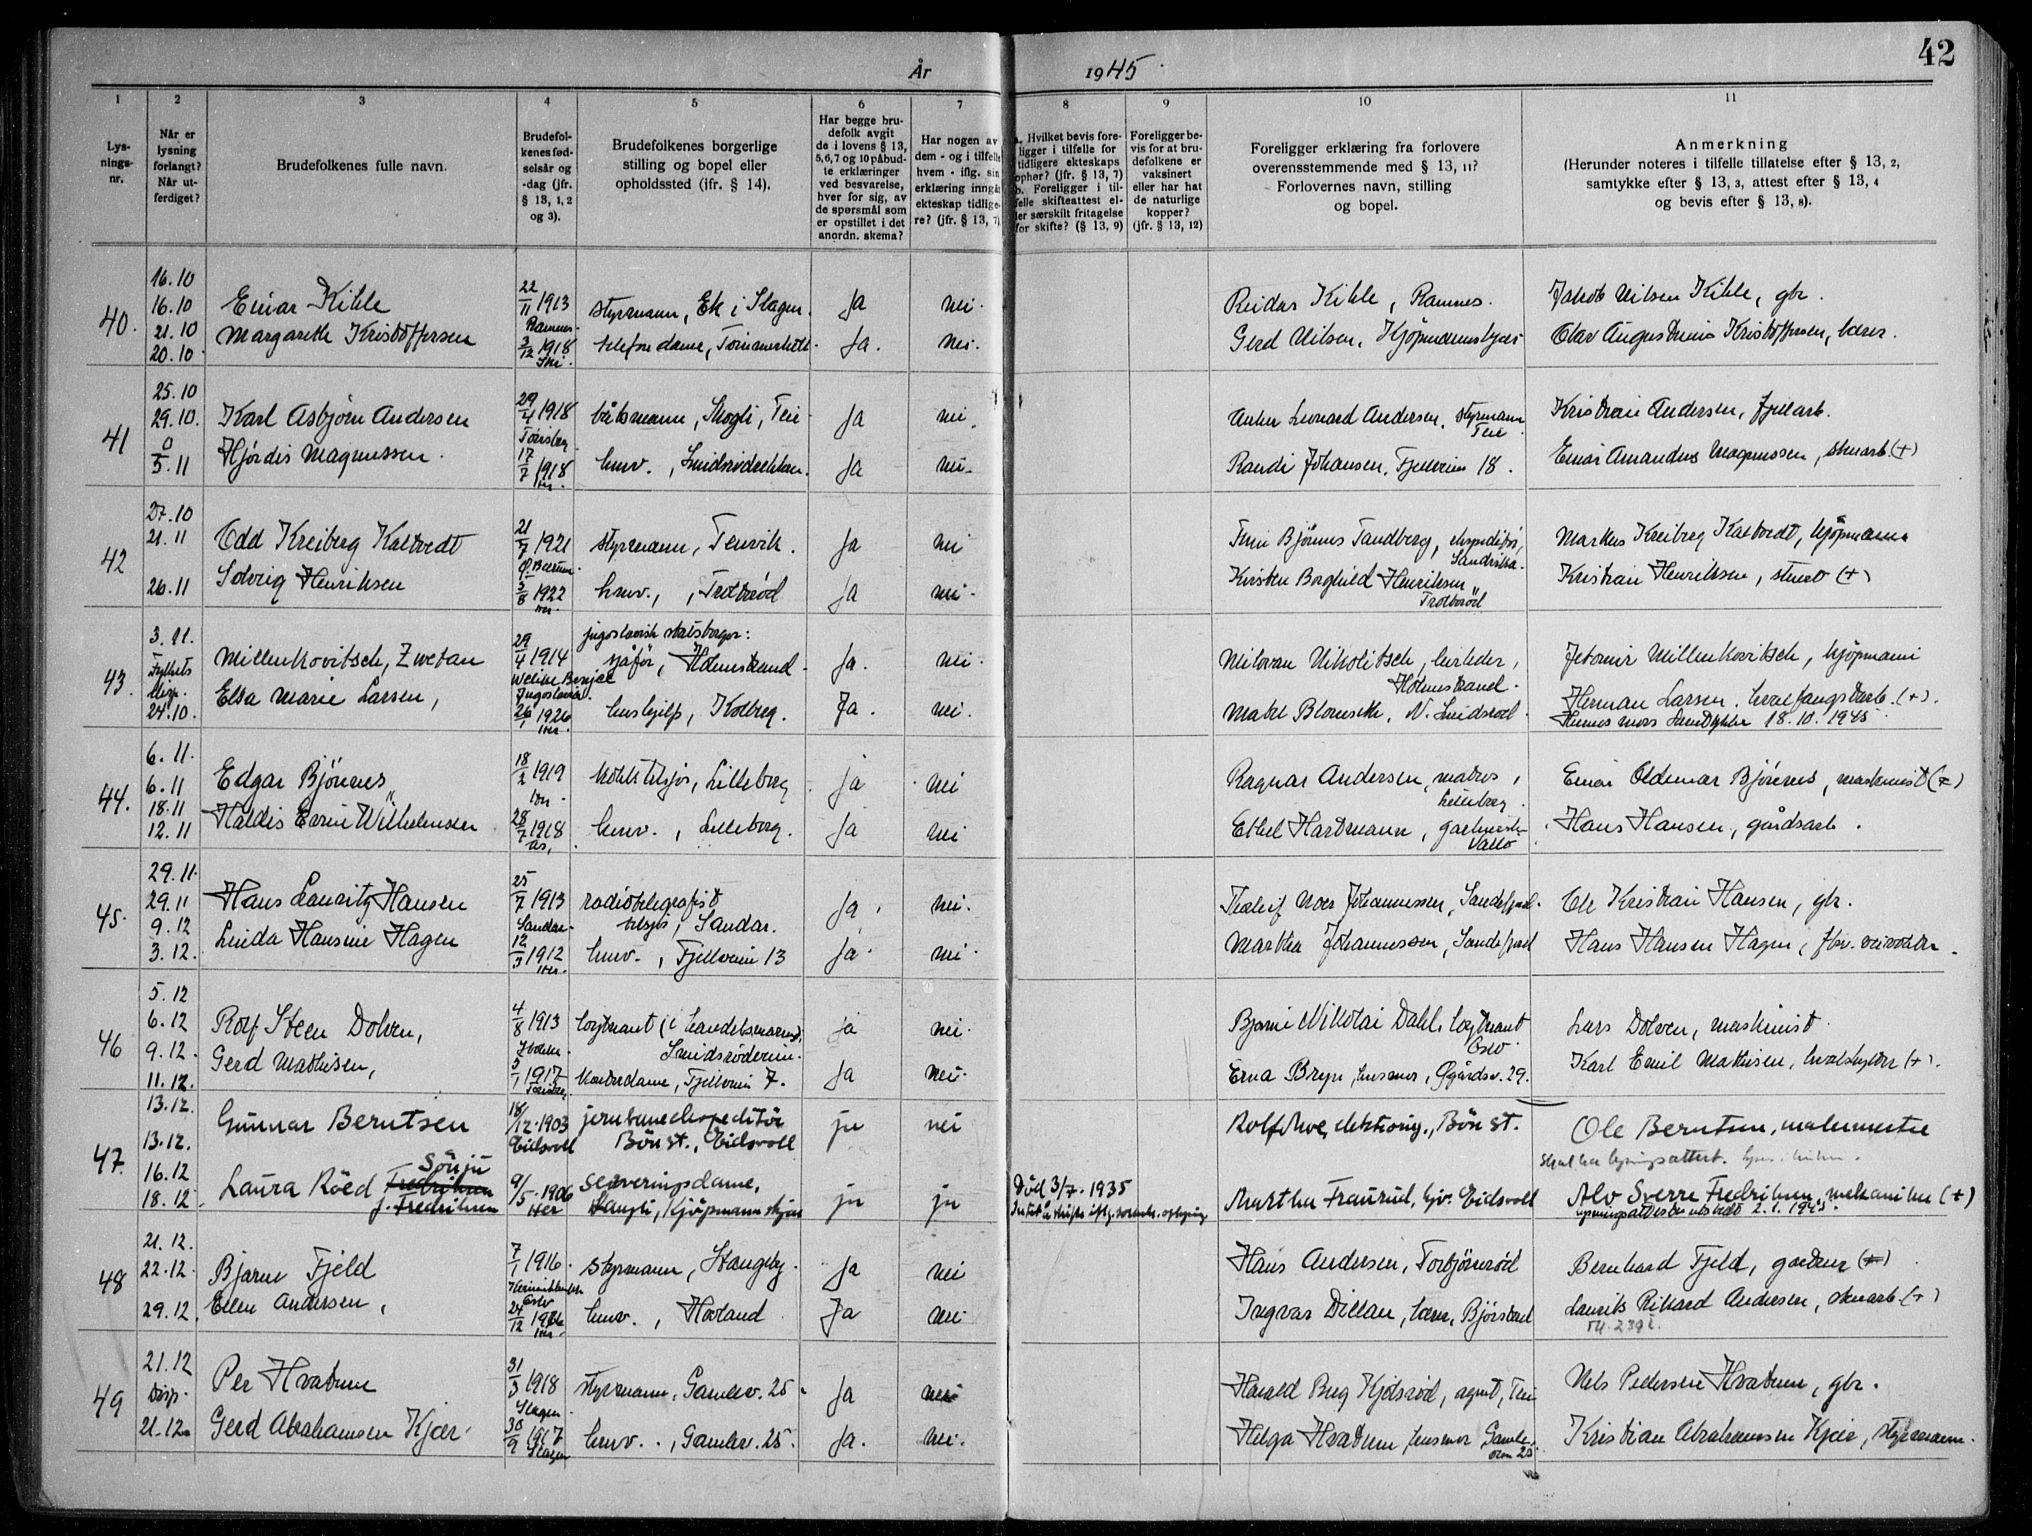 År 1945.
42
1 2 3 4 5 6 7 8 9 10 11
Lys-
nings-
nr.
Når er
lysning
forlangt?
Når ut-
ferdiget?
Brudefolkenes fulle navn.
Brudefol-
kenes fød-
selsår og
-dag (jfr.
§ 13, 1, 2
og 3).
Brudefolkenes borgerlige
stilling og bopel eller
opholdssted (ifr. § 14).
Har begge bru-
defolk avgit
de i lovens § 13,
5,6,7 og 10 påbud-
te erklæringer
ved besvarelse,
hver for sig, av
de spørsmål som
er opstillet i det
anordn. skema?
Har nogen av
dem - og i tilfelle
hvem - iflg. sin
erklæring inngåt
ekteskap tidlige-
re? (jfr. § 13, 7)
a. Hvilket bevis fore-
ligger i tilfelle for
tidligere ekteskaps
ophør? (jfr. § 13, 7)
b. Foreligger i til-
felle skifteattest el-
ler særskilt fritagelse
for skifte? (§ 13, 9)
Foreligger be-
vis for at bru-
defolkene er
vaksinert
eller har hat
de naturlige
kopper?
(jfr. § 13, 12)
Foreligger erklæring fra forlovere
overensstemmende med § 13, 11?
Forlovernes navn, stilling
og bopel.
Anmerkning
(Herunder noteres i tilfelle tillatelse efter § 13, 2,
samtykke efter § 13, 3, attest efter § 13, 4
og bevis efter § 13, 8).
40.
16.10
16.10
21.10
20.10
Einar Kihle
22/11 1913
Ramnes
styrmann, Ek i Slagen.
Ja
nei.
Reidar Kihle, Ramnes.
Jakob Nilsen Kihle, gbr.
Margareth Kristoffersen
3/12 1918
Ski.
telefondame,
Ja.
nei.
Gerd Nilsen,
Olav Kristoffersen, lærer.
41
25.10
29.10.
0
5.11
Karl Asbjørn Andersen
29/4 1918
Tønsberg
båtsmann, Skogli, Teie
Ja
nei.
Anker Leonard Andersen, styrmann
Teie
Kristian Andersen,
Hjørdis Magnussen.
17/7 1918
Her.
husv.,
Ja
nei.
Randi Johansen, Fjellveien 18.
Einar Amandus Magnussen, skuarb (+)
42
27.10
21.11
26.11
Odd Kreiberg Kaltvedt
21/7 1921
Ø. Bærum
styrmann, Tenvik.
Ja
nei
Bjørnes Tandberg, ekspeditør,
Markus Kreiberg Kaltvedt, kjøpmann
Solveig Henriksen
3/8 1922
Her.
husv.,
Ja
nei.
Kirsten Borghild Henriksen
Kristian Henriksen, (+)
43.
3.11.
Fylkets
disp.
24.10.
jugoslavisk statsborger:
Millenkovitsch, Zwetan
29/4 1914
Jugoslavia.
sjåfør, Holmestrand
Ja.
nei.
Milovan Nikolitsch,
Holmestrand.
Millenkovitsch, kjøpmann
Elsa Marie Larsen,
26/1 1926
Her.
hushjelp, Kolberg.
Ja.
nei.
Mabel N. Smidsrød
Herman Larsen, hvalfangstarb. (+).
Hennes mors samtykke 18.10.1945.
44.
6.11.
6.11
18.11
12.11
Edgar Bjønnes
18/2 1919
Her.
kokk tilsjøs, Lilleborg
ja
nei
Ragnar Andersen, matros,
Lilleborg
Einar Oldemar Bjønnes, maskinist (+)
Haldis Wilhelmsen
28/7 1918
Ås,
husv., Lilleborg.
Ja
nei
Ethel Hartmann,
Vallø
Hans Hansen, gårdsarb.
45.
29.11.
29.11
9.12
3.12.
Hans Lauritz Hansen
25/7 1913
Sandar
radiotelegrafist
tilsjøs, Sandar.
Ja.
nei.
Johannessen, Sandefjord.
Ole Kristian Hansen, gbr.
Linda Hansine Hagen
12/3 1912
Her.
husv., Fjellveien 13
Ja.
nei.
Martha Johannessen, Sandefjord
Hans Hansen Hagen,
46
5.12
6.12
9.12.
11.12.
Rolf Steen Dolven,
4/8 1913
løytnant (i handelsmarine),
Smidsrødveien.
ja
nei.
Bjarne Nikolai Dahl, løytnant
Oslo
Lars Dolven, maskinist.
Gerd Mathisen,
5/1 1917
Tønsberg
kontordame, Fjellveien 7.
Ja
nei.
Erna Bryn, husmor, Øgårdsv. 29.
Karl Emil Mathisen, hvalskytter (+).
47.
13.12.
13.12.
16.12
18.12.
Gunnar Berntsen
18/12.1903
Eidsvoll
jernbaneekspeditør
Bøn st., Eidsvoll
ja
nei
Rolf Moe, elektroing., Bøn st.
Ole Berntsen, malermester
Laura Røed Fredriksen
Sønju
f. Fredriksen
9/5.1906
Her
serveringsdame,
ja
ja
Død 3/7. 1935
Martha Eidsvoll
Alv Sverre Fredriksen, mekaniker (+)
48
21.12.
22.12.
29.12.
Bjarne Fjeld
7/1 1916.
Oslo
styrmann, Stangeby.
Ja
nei
Hans Andersen, Torbjørnrød
Bernhard Fjeld, gartner (+)
Ellen Andersen,
24/12
Her.
husv., Hovland
Ja
nei
Ingvar Dillan,
Laurits Rikard Andersen, skuarb. (+)
49
21.12
Disp.
21.12.
Per Hvatum
31/3 1918
Slagen
styrmann, Gamlev. 25.
Ja
nei
Harald agent, Teie
Nils Pedersen Hvatum, gbr.
Gerd Abrahamsen Kjær.
30/9 1917
Slagen
husv., Gamlev. 25.
Ja.
nei.
Helga Hvatum, husmor Gamle-
veien 25
Kristian Abrahamsen Kjær, styrmann.